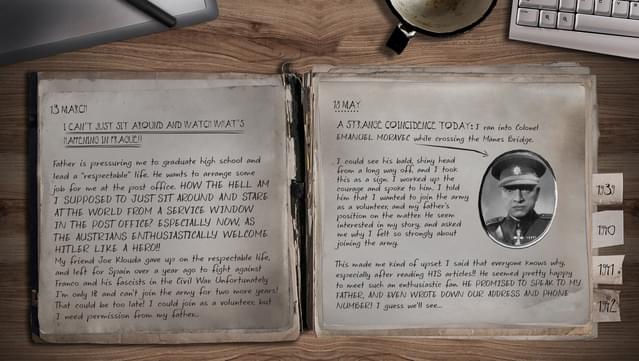 13 MARCH
I CAN'T JUST SIT AROUND AND WATCH WHAT'S
HAPPENING IN PRAGUE!!
Father is pressuring me to graduate high school and
lead a "respectable" life. He wants to arrange some
job for me at the post office. HOW THE HELL AM
I SUPPOSED TO JUST SIT AROUND AND STARE
AT THE WORLD FROM A SERVICE WINDOW
IN THE POST OFFICE? ESPECIALLY NOW, AS
THE AUSTRIANS ENTHUSIASTICALLY WELCOME
HITLER LIKE A HERO!!
My friend Joe Klouda gave up on the respectable life,
and left for Spain over a year ago to fight against
Franco and his fascists in the Civil War. Unfortunately
I'm only 18 and can't join the army for two more years!
That could be too late! I could join as a volunteer, but
I need permission from my father...
18 MAY
A STRANGE COINCIDENCE TODAY: I ran into Colonel
EMANUEL MORAVEC while crossing the Mánes Bridge.
I could see his bald, shiny head
from a long way off, and I took
this as a sign. I worked up the
courage and spoke to him. I told
him that I wanted to join the army
as a volunteer, and my father's
position on the matter. He seemed
interested in my story, and asked
me why I felt so strongly about
joining the army.
This made me kind of upset. I said that everyone knows why,
especially after reading HIS articles!! He seemed pretty happy
to meet such an enthusiastic fan. HE PROMISED TO SPEAK TO MY
FATHER, AND EVEN WROTE DOWN OUR ADDRESS AND PHONE
NUMBER! I guess we'll see...
1939
1940
1941
1942